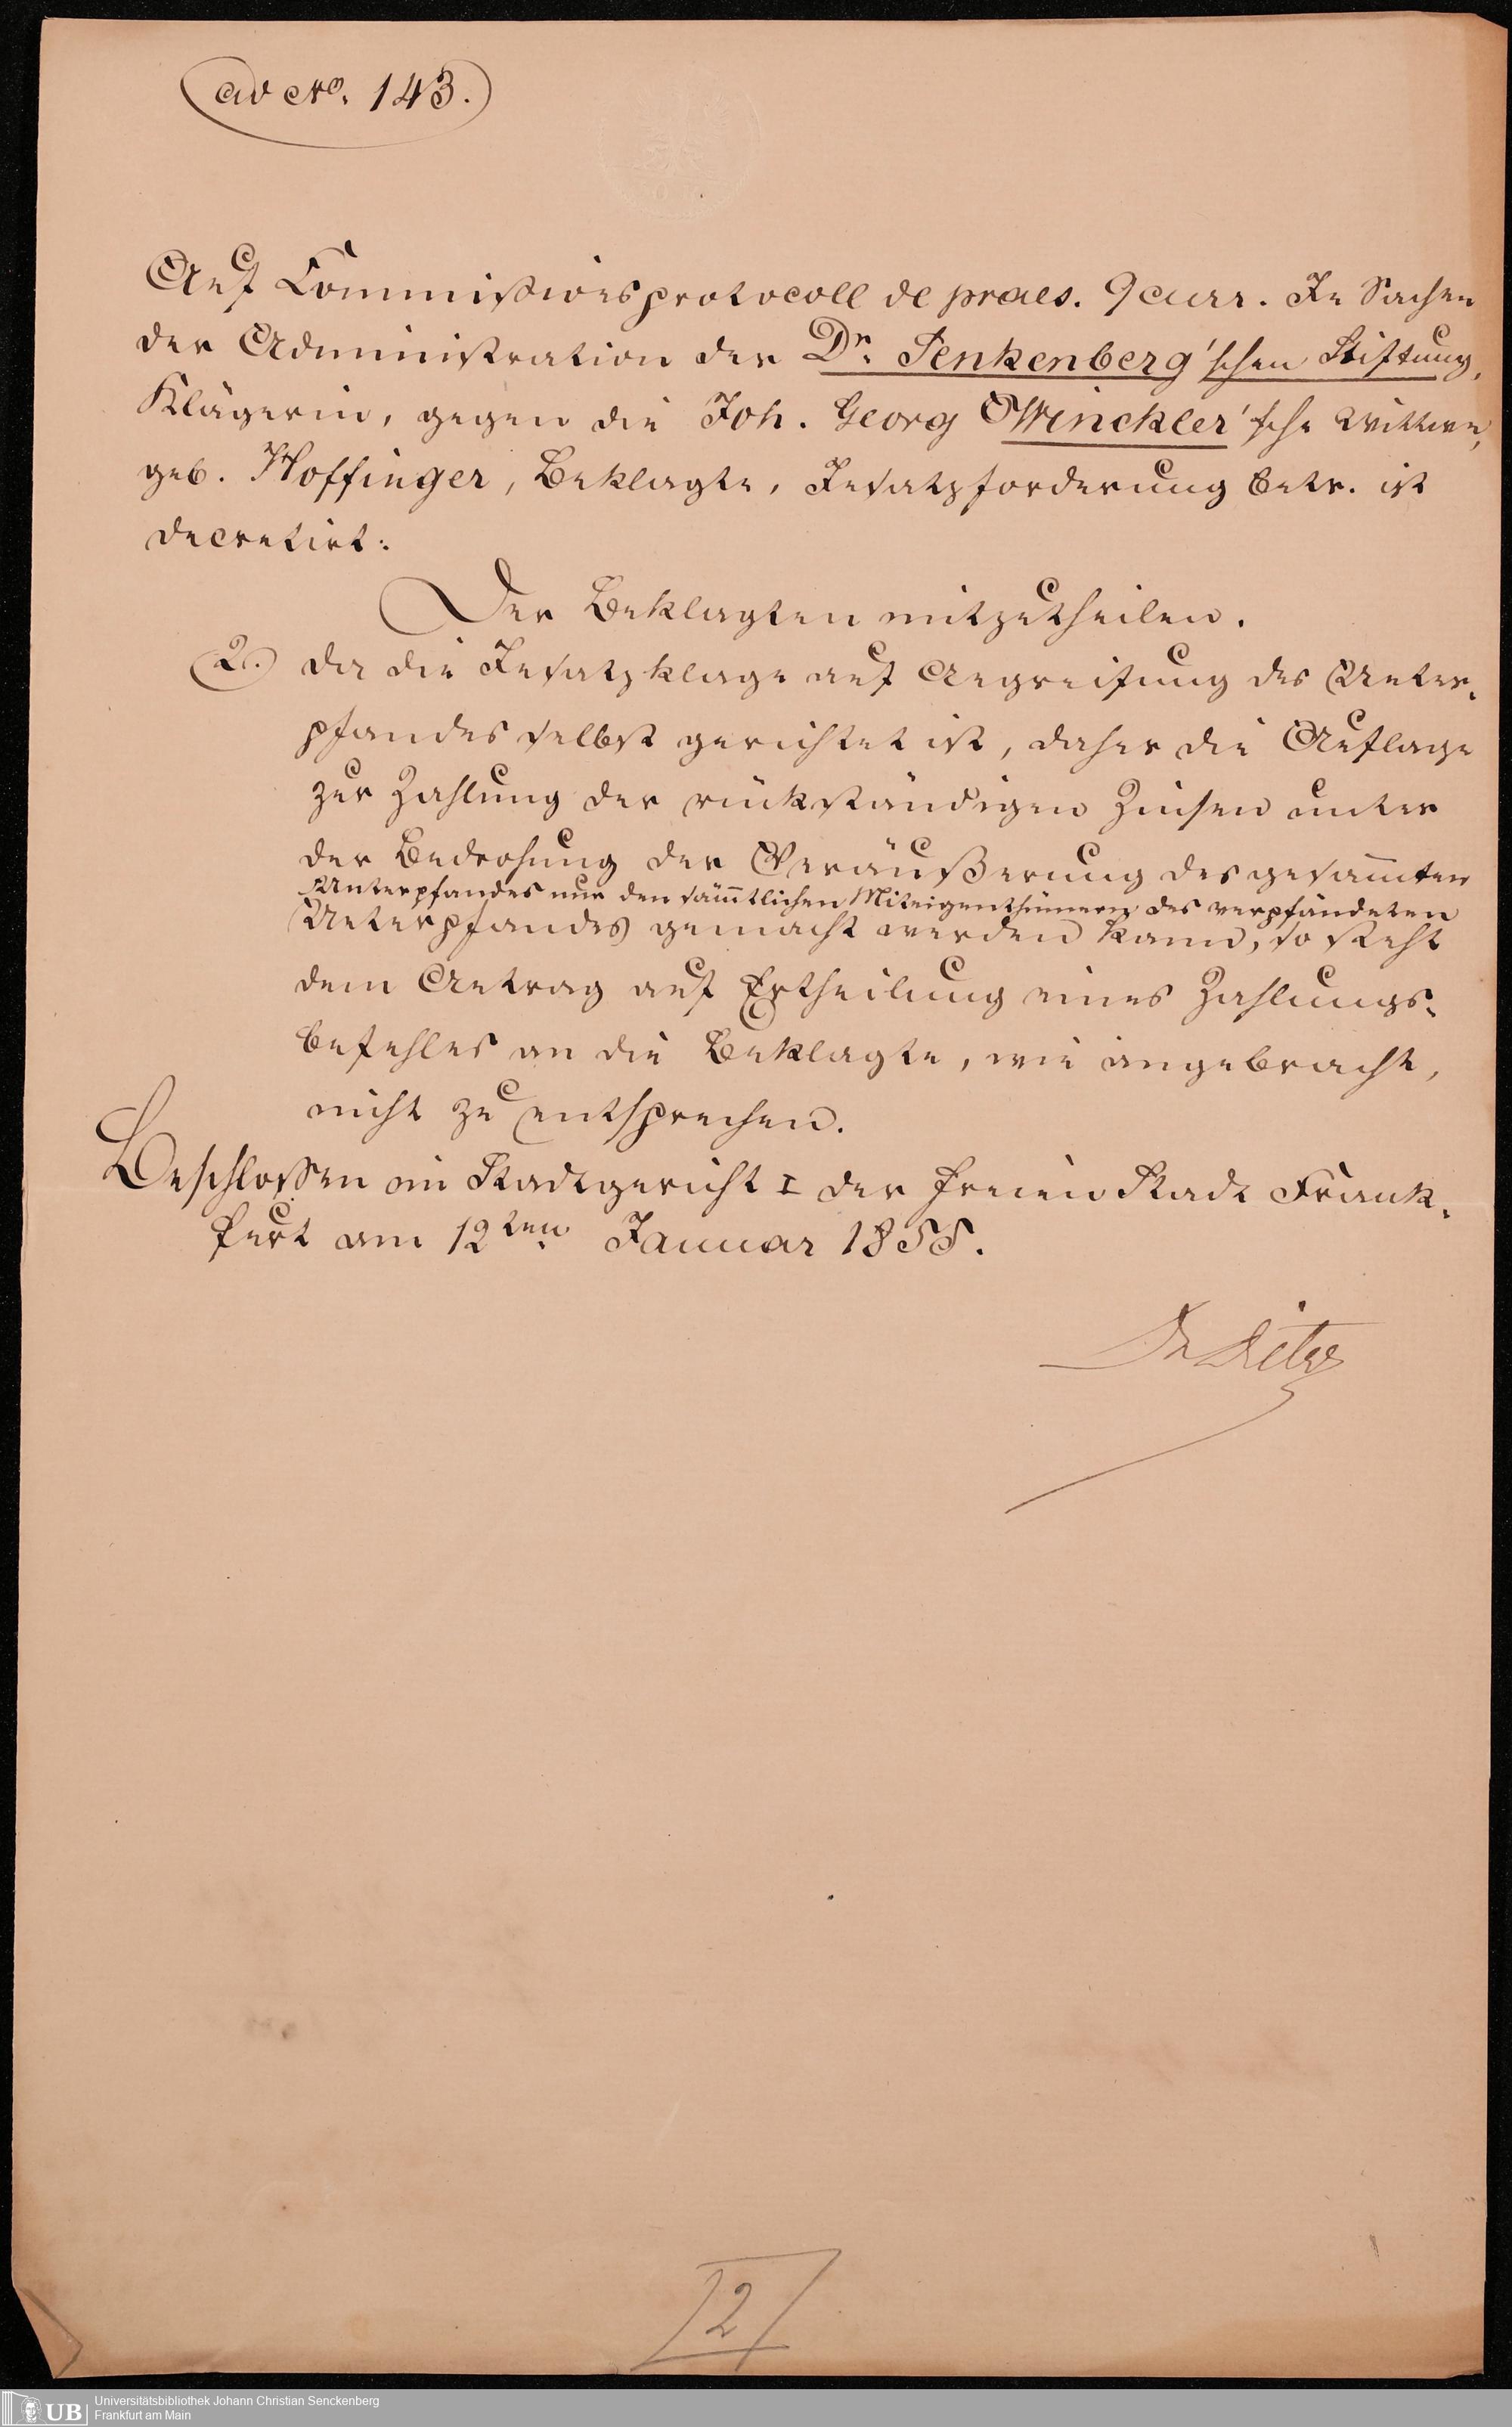 ad Nro. 143.
Auf Commissionsprotocoll de praes. 9 curr. In Sachen
der Administration der Dr. Senkenberg'schen Stiftung,
Klägerin, gegen die Joh. Georg Winckler'sche Wittwe,
geb. Hoffinger, Beklagte, Insatzforderung betr. ist
decretirt:
Der Beklagten mitzutheilen.
2. Da die Insatzklage auf Angreifung des Unter-
pfandes selbst gerichtet ist, daher die Auflage
zur Zahlung der rückständigen Zinsen unter
der Bedrohung der Veräußerung des gesammten
Unterpfandes nur den sämmtlichen Miteigenthümern des verpfändeten
Unterpfandes gemacht werden kann, so steht
dem Antrag auf Ertheilung eines Zahlungs-
befehles an die Beklagte, wie angebracht,
nicht zu entsprechen.
Beschlossen im Stadtgericht I der freien Stadt Frank-
furt am 12ten Januar 1855.
Dr
12
UB
Universitätsbibliothek Johann Christian Senckenberg
Frankfurt am Main